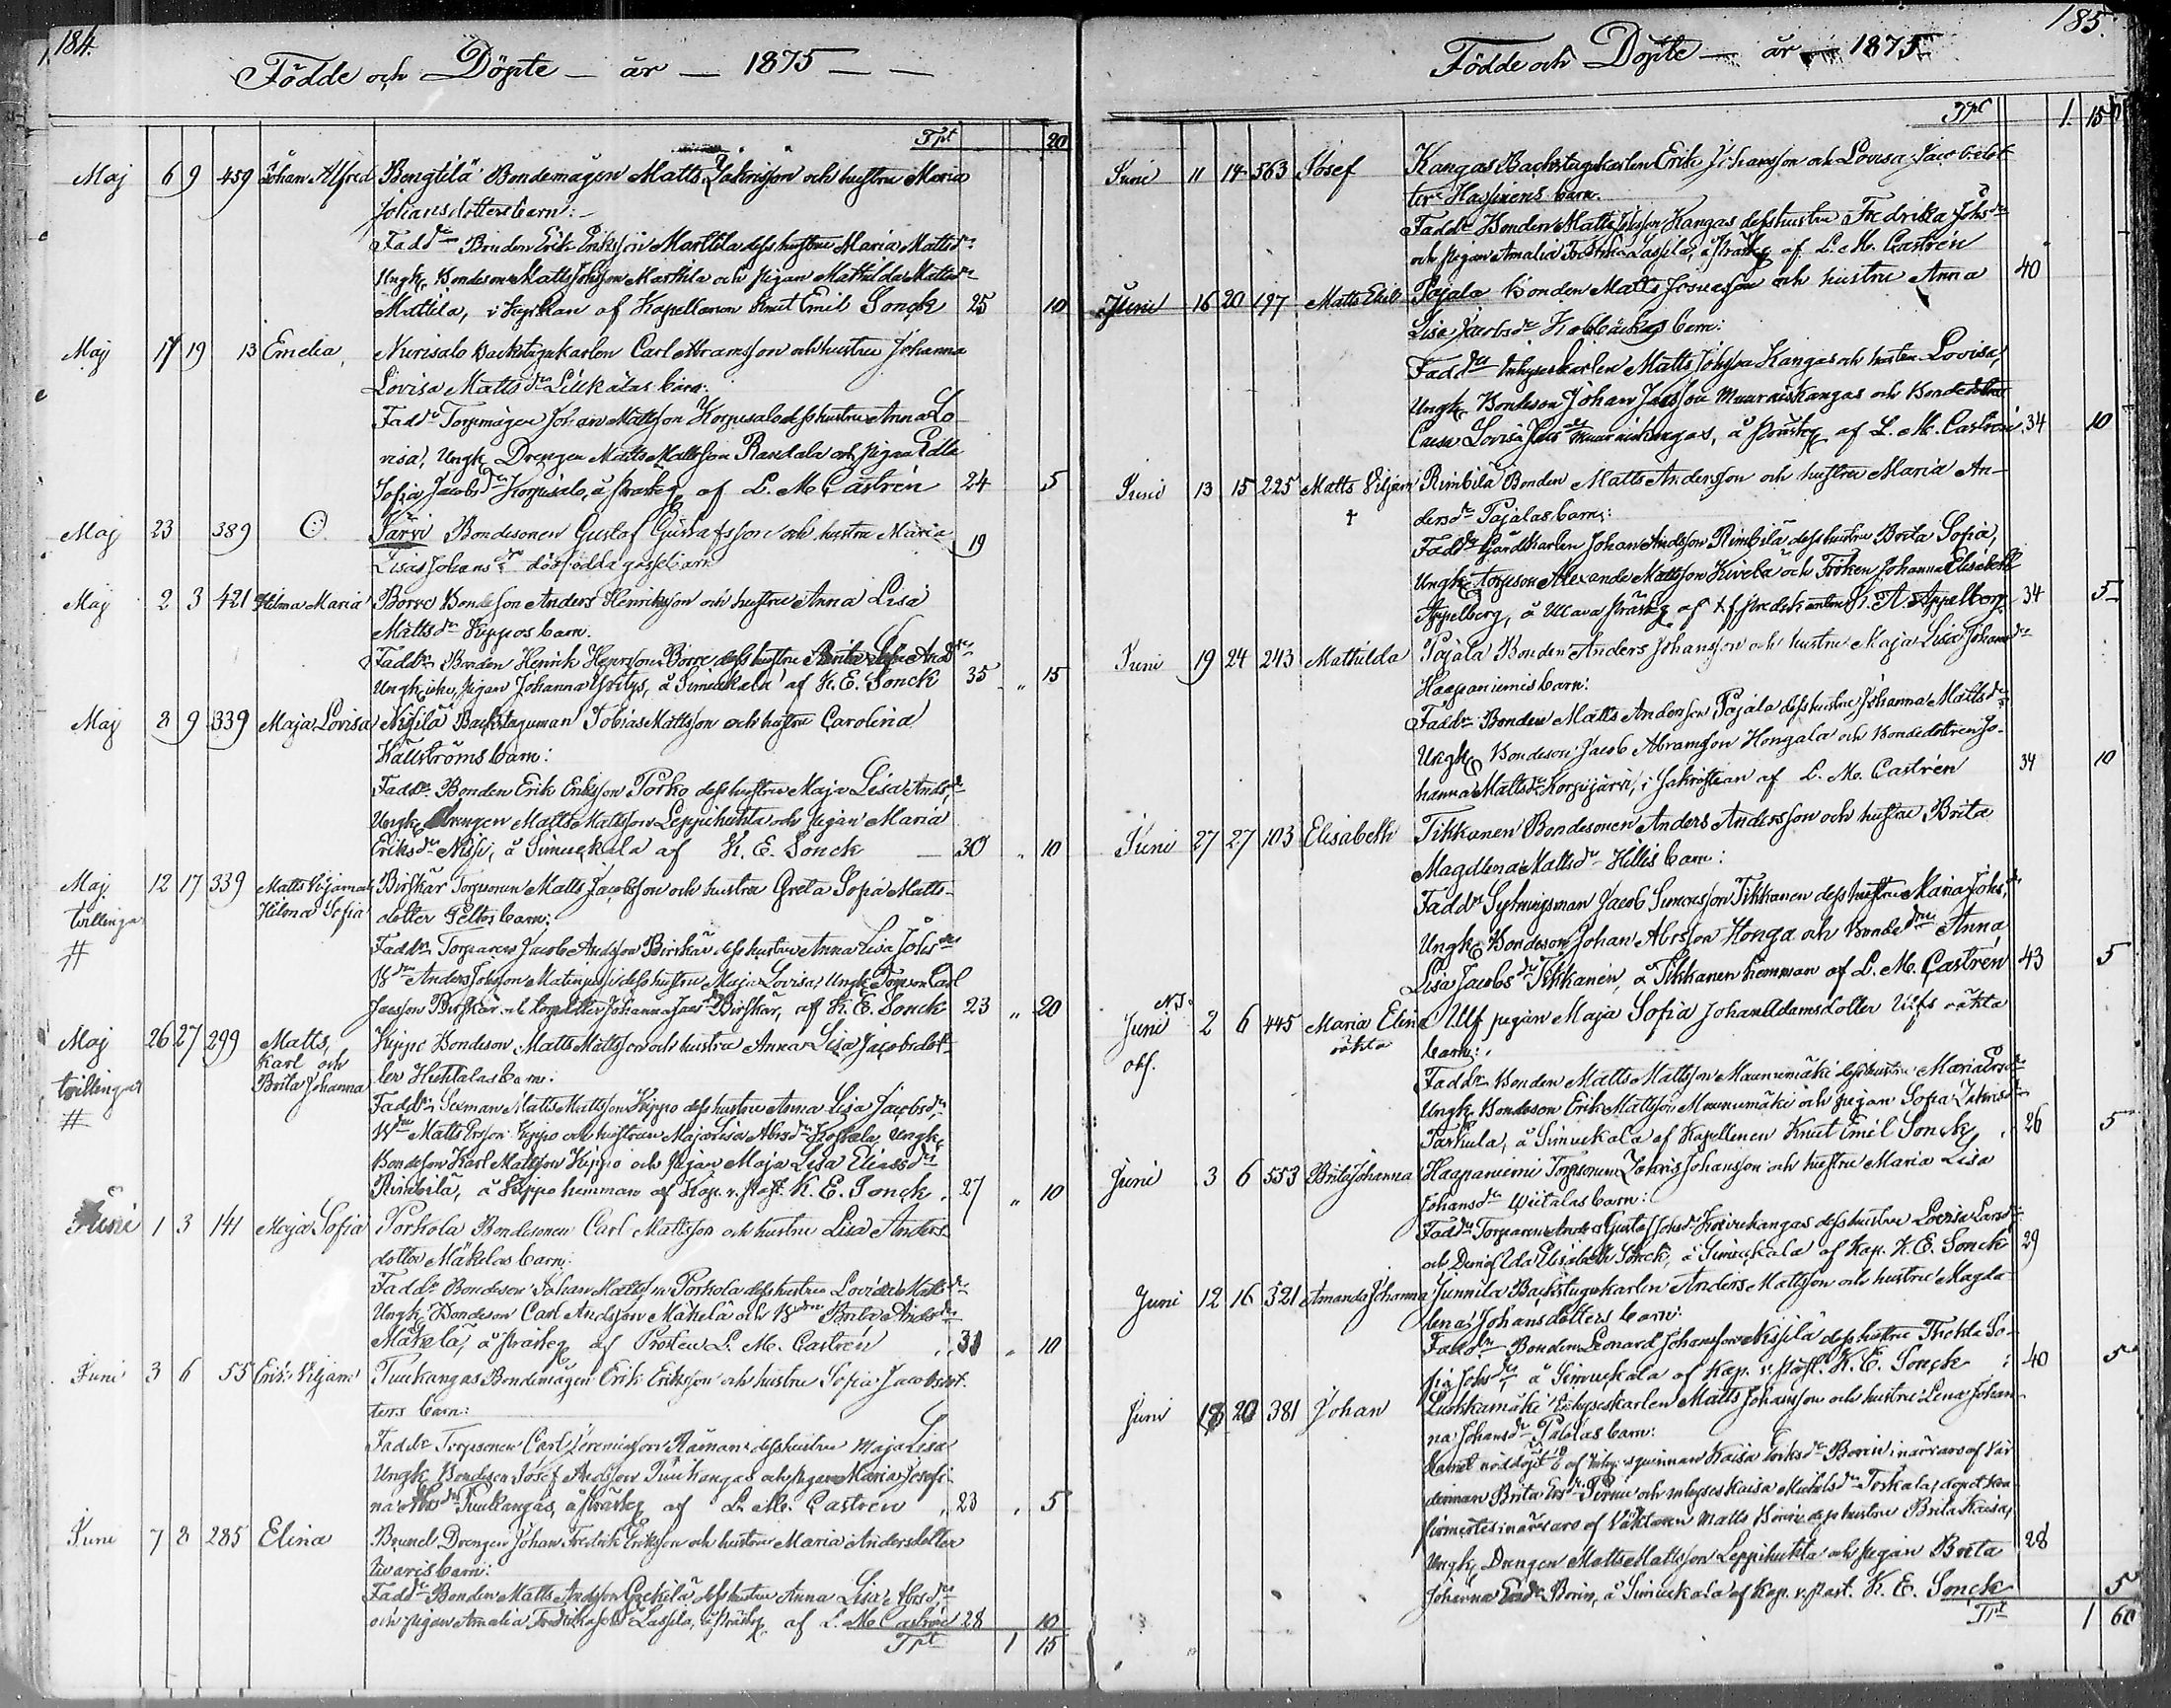 184.
Födde och Döpte - år - 1875 - -
Tpt 20
Maj 6 9 459 Johan Alfred Bengtilä Bondemågen Matts Zakrisson och hustru Maria
Johansdotters barn:
Faddr Bonden Erik Eriksson Marttila dess hustru Maria Mattsdr
Ungk. Bondeson Matts Johsson Marttila och pigan Mathilda Mattsdr
Mattila, i Kyrkan af Kapellanen Knut Emil Sonck 25 10
Maj 17 19 13 Emelia, Nurisalo Backstugukarlen Carl Abramsson och hustru Johanna
Lovisa Mattsdr Liukalas barn:
Faddr Torpmågen Johan Mattsson Korpusalo dess hustru Anna Lo-
visa, Ungk. Drengen Matts Mattsson Randala och pigan Edla
Sofia Jacobsdr Korpusalo, å prästg. af L. M. Castrén 24 5
Maj 23 389 Järvi Bondesonen Gustaf Gustafsson och hustru Maria
Lisas Johansdr dödfödda gossebarn 19
Maj 2 3 421 Hilma Maria Borre Bondeson Anders Henriksson och hustru Anna Lisa
Mattsdr Kippos barn.
Faddr Bonden Henrik Henrsson Borre, dess hustru Brita Andsdr
Ungk. pigan Johanna Yritys, å Simuckala af K. E. Sonck 35 " 15
Maj 8 9 339 Maja Lovisa Nisilä Backstuguman Tobias Mattsson och hustru Carolina
Källströms barn:
Faddr Bonden Erik Eriksson Porko dess hustru Maja Lisa Andsdr
Ungk. Drengen Matts Mattsson Leppihuhta och pigan Maria
Eriksdr Nissi, å Simuckala af K. E. Sonck 30 " 10
Maj 12 17 339 Matts Viljam och Birskär Torparen Matts Jacobsson och hustru Greta Sofia Matts-
tvillingar Hilma Sofia dotter Peltos barn:
# Faddr Torparen Jacob Andsson Birskär dess hustru Anna Lisa Johsdr
Anders Johsson dess hustru Maja Lovisa, Ungk. Torpson Carl
Jacsson Birskär och torpdotter Johanna Jacsdr Birskär, af K. E. Sonck 23 " 20
Maj 26 27 299 Matts, Kippo Bondeson Matts Mattsson och hustru Anna Lisa Jacobsdot-
tvillingar Karl och Brita Johanna ter Huhtalas barn:
# Faddr Sexman Matts Mattsson Kippo dess hustru Anna Lisa Jacobsdr,
Matts Ersson Kippo och hustrun Maja Lisa Abrsdr Koskela, Ungk.
Bondeson Karl Mattsson Kippo och Pigan Maja Lisa Eliasdr
Rimbilä, å Kippo hemman af Kap. v. past. K. E. Sonck. 27 " 10
Juni 1 3 141 Maja Sofia Porkola Bondesonen Carl Mattsson och hustru Lisa Anders-
dotter Mäkelas barn:
Faddr Bondeson Johan Mattsson Porkola dess hustru Lovisa Mattsdr
Ungk. Bondeson Carl Andsson Mäkelä och Brita Andsdr
Mäkelä, å prästg. af Prosten L. M. Castrén 31 " 10
Juni 3 6 55 Erik Viljam Tuukangas Bondemågen Erik Eriksson och hustru Sofia Jacobsdot-
ters barn:
Faddr Torpsonen Carl Jeremiasson Räman dess hustru Maja Lisa
Ungk. Bondeson Josef Andsson Tuukangas och pigan Maria Josefi-
na Tuukangas, å prästg. af L. M. Castrén 23 5
Juni 7 8 285 Elina Brunel Drengen Johan Fredrik Eriksson och hustru Maria Andersdotter
barn:
Faddr Bonden Matts Andsson dess hustru Anna Lisa Abrsdr
och pigan Amalia Fredrika Lassila, å prästg. af L. M. Castrén 28 10
Tpt 1 15
185.
Födde och Döpte - år - 1875
Tpt 1. 15
Juni 11 14 563 Josef Kangas Backstugukarlen Erik Johansson och Lovisa Jacobsdot-
ter Hassinens barn.
Faddr Bonden Matts Johsson Kangas dess hustru Fredrika Johsdr
och pigan Amalia Fredrika Lassila, å prästg. af L. M. Castrén 40
Juni 16 20 197 Matts Emil Pajala Bonden Matts Josuasson och hustru Anna
Lisa Jacobsdr Kobbäckas barn:
Faddr Inhyseskarlen Matts Johsson Kangas och hustru Lovisa,
Ungk. Bondeson Johan Jacsson Muurinkangas och Bondedotter
Lovisa Jacsdr Muurinkangas, å prästg. af L. M. Castrén 34 10
Juni 13 15 225 Matts Viljam Rimbilä Bonden Matts Andersson och hustru Maria An-
† dersdr Pajalas barn:
Faddr Gårdskarlen Johan Andsson Rimbilä dess hustru Brita Sofia,
Ungk. torpson Alexander Mattsson Kivelä och Fröken Johanna Elisabeth
Appelberg, å Ullava prästg. af t.f. predikanten A. Appelberg 34 5
Juni 19 24 243 Mathilda Pajala Bonden Anders Johansson och hustru Maja Lisa Johansdr
Haapaniemis barn:
Faddr Bonden Matts Andersson Pajala dess hustru Johanna Mattsdr
Ungk. Bondeson Jacob Abramsson Hongala och Bondedottren Jo-
hanna Mattsdr Korpijärvi, i Sakristian af L. M. Castrén 34 10
Juni 27 27 103 Elisabeth Tikkanen Bondesonen Anders Andersson och hustru Brita
Magdlena Mattsdr Hillis barn:
Faddr Sytningsman Jacob Simonsson Tikkanen dess hustru Maria Johsdr
Ungk. Bondeson Johan Abrsson Honga och Bondedtr Anna
Lisa Jacobsdr Tikkanen, å Tikkanen hemman af L. M. Castrén 43 5
Juni 2 6 445 Maria Elina Ulf pigan Maja Sofia Johan Adamsdotter Ulfs oäkta
obs. oäkta barn:
Faddr Bonden Matts Mattsson Maunumäki dess hustru Maria
Ungk. Bondeson Erik Mattsson Maunumäki och pigan Sofia Zakrisdr
Tastula, å Simuckala af Kapellanen Knut Emil Sonck 26 5
Juni 3 6 553 Brita Johanna Haapaniemi Torpsonen Zakris Johansson och hustru Maria Lisa
Johansdr Wiitalas barn:
Faddr Torparen Anders Gustaf Johsson Koivukangas dess hustru Lovisa Larsdr
och Demois. Ida Elisabeth Sonck, å Simuckala af Kap. K. E. Sonck 29
Juni 12 16 321 Amanda Johanna Junnila Backstugukarlen Anders Mattsson och hustru Magda-
lena Johansdotters barn:
Faddr Bonden Leonard Johansson Nissilä dess hustru Thekla So-
fia Johsdr, å Simuckala af Kap. v. past. K. E. Sonck 40 5
Juni 18 20 381 Johan Luokkamäki Inhyseskarlen Matts Johansson och hustru Lena Johan-
na Johansdr Palolas barn:
Barnet nöddöpt af inhysesqvinnan Kaisa Eriksdr i närvaro af Vär-
dinnan Brita Ersdr och inhyses Kaisa Michelsdr Torkala, dopet kon-
firmerades i närvaro af Väktaren Matts dess hustru Brita Kaisa,
Ungk. Drengen Matts Mattsson Leppihuhta och pigan Brita
Johanna, å Simuckala af Kap. v. past. K. E. Sonck 28 5
Tpt 1 60